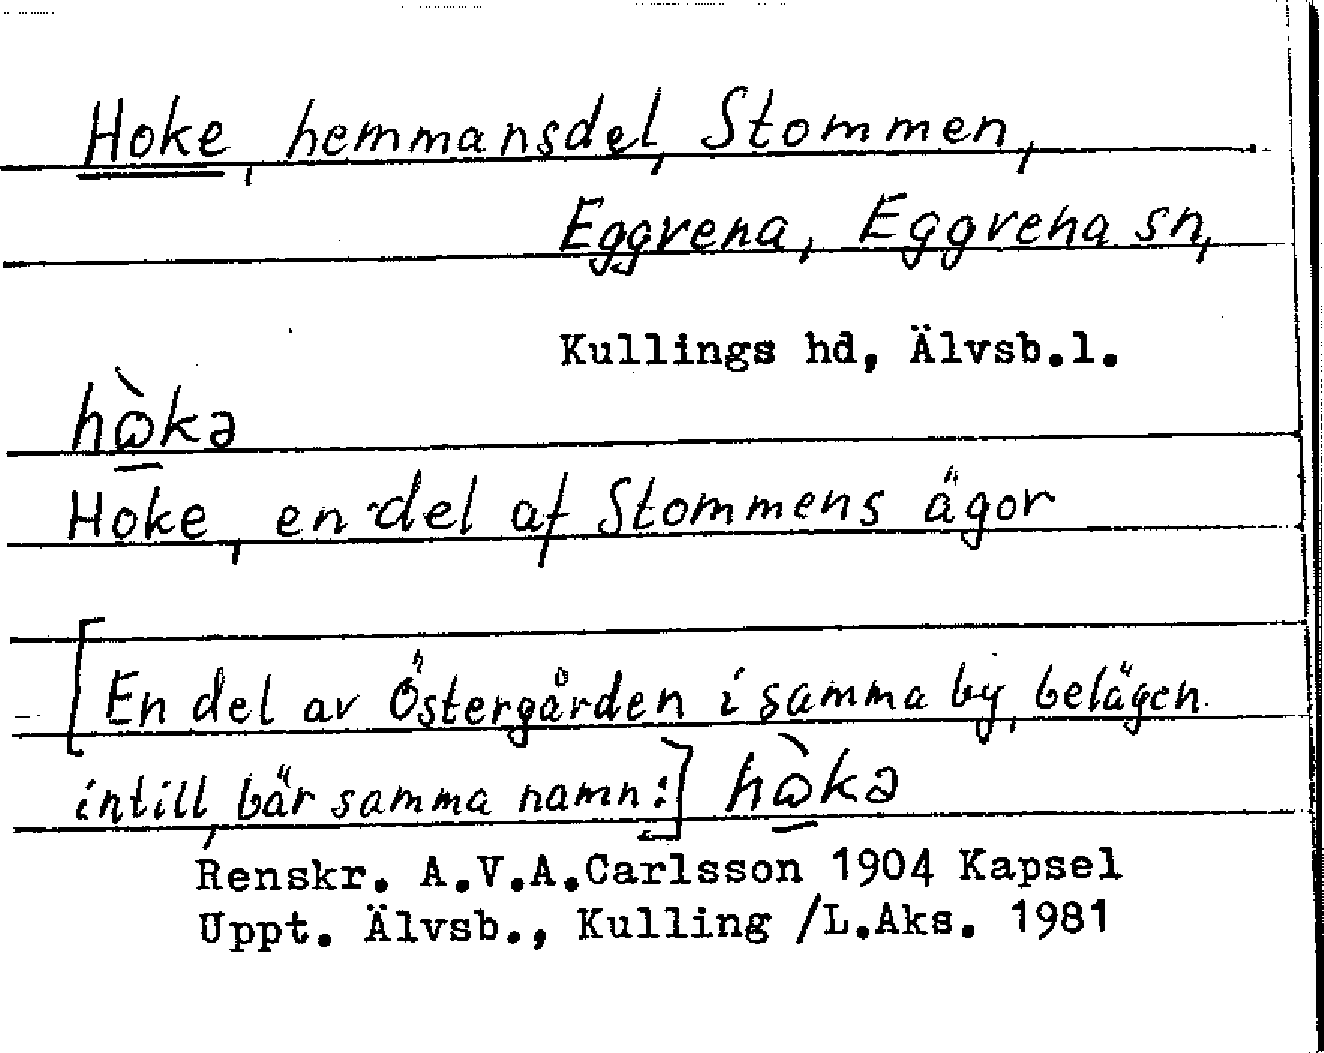 Hoke, hemmansdel, Stommen,
Eggvena, Eggvena sn,
Kullings hd, Älvsb.l.
hὼ̱kə
Hoke, en del af Stommens ägor
[En del av Östergården i samma by, belägen
intill, bär samma namn:] hὼ̱kə
Renskr. A.V.A.Carlsson 1904 Kapsel
Uppt. Älvsb., Kulling /L.Aks. 1981